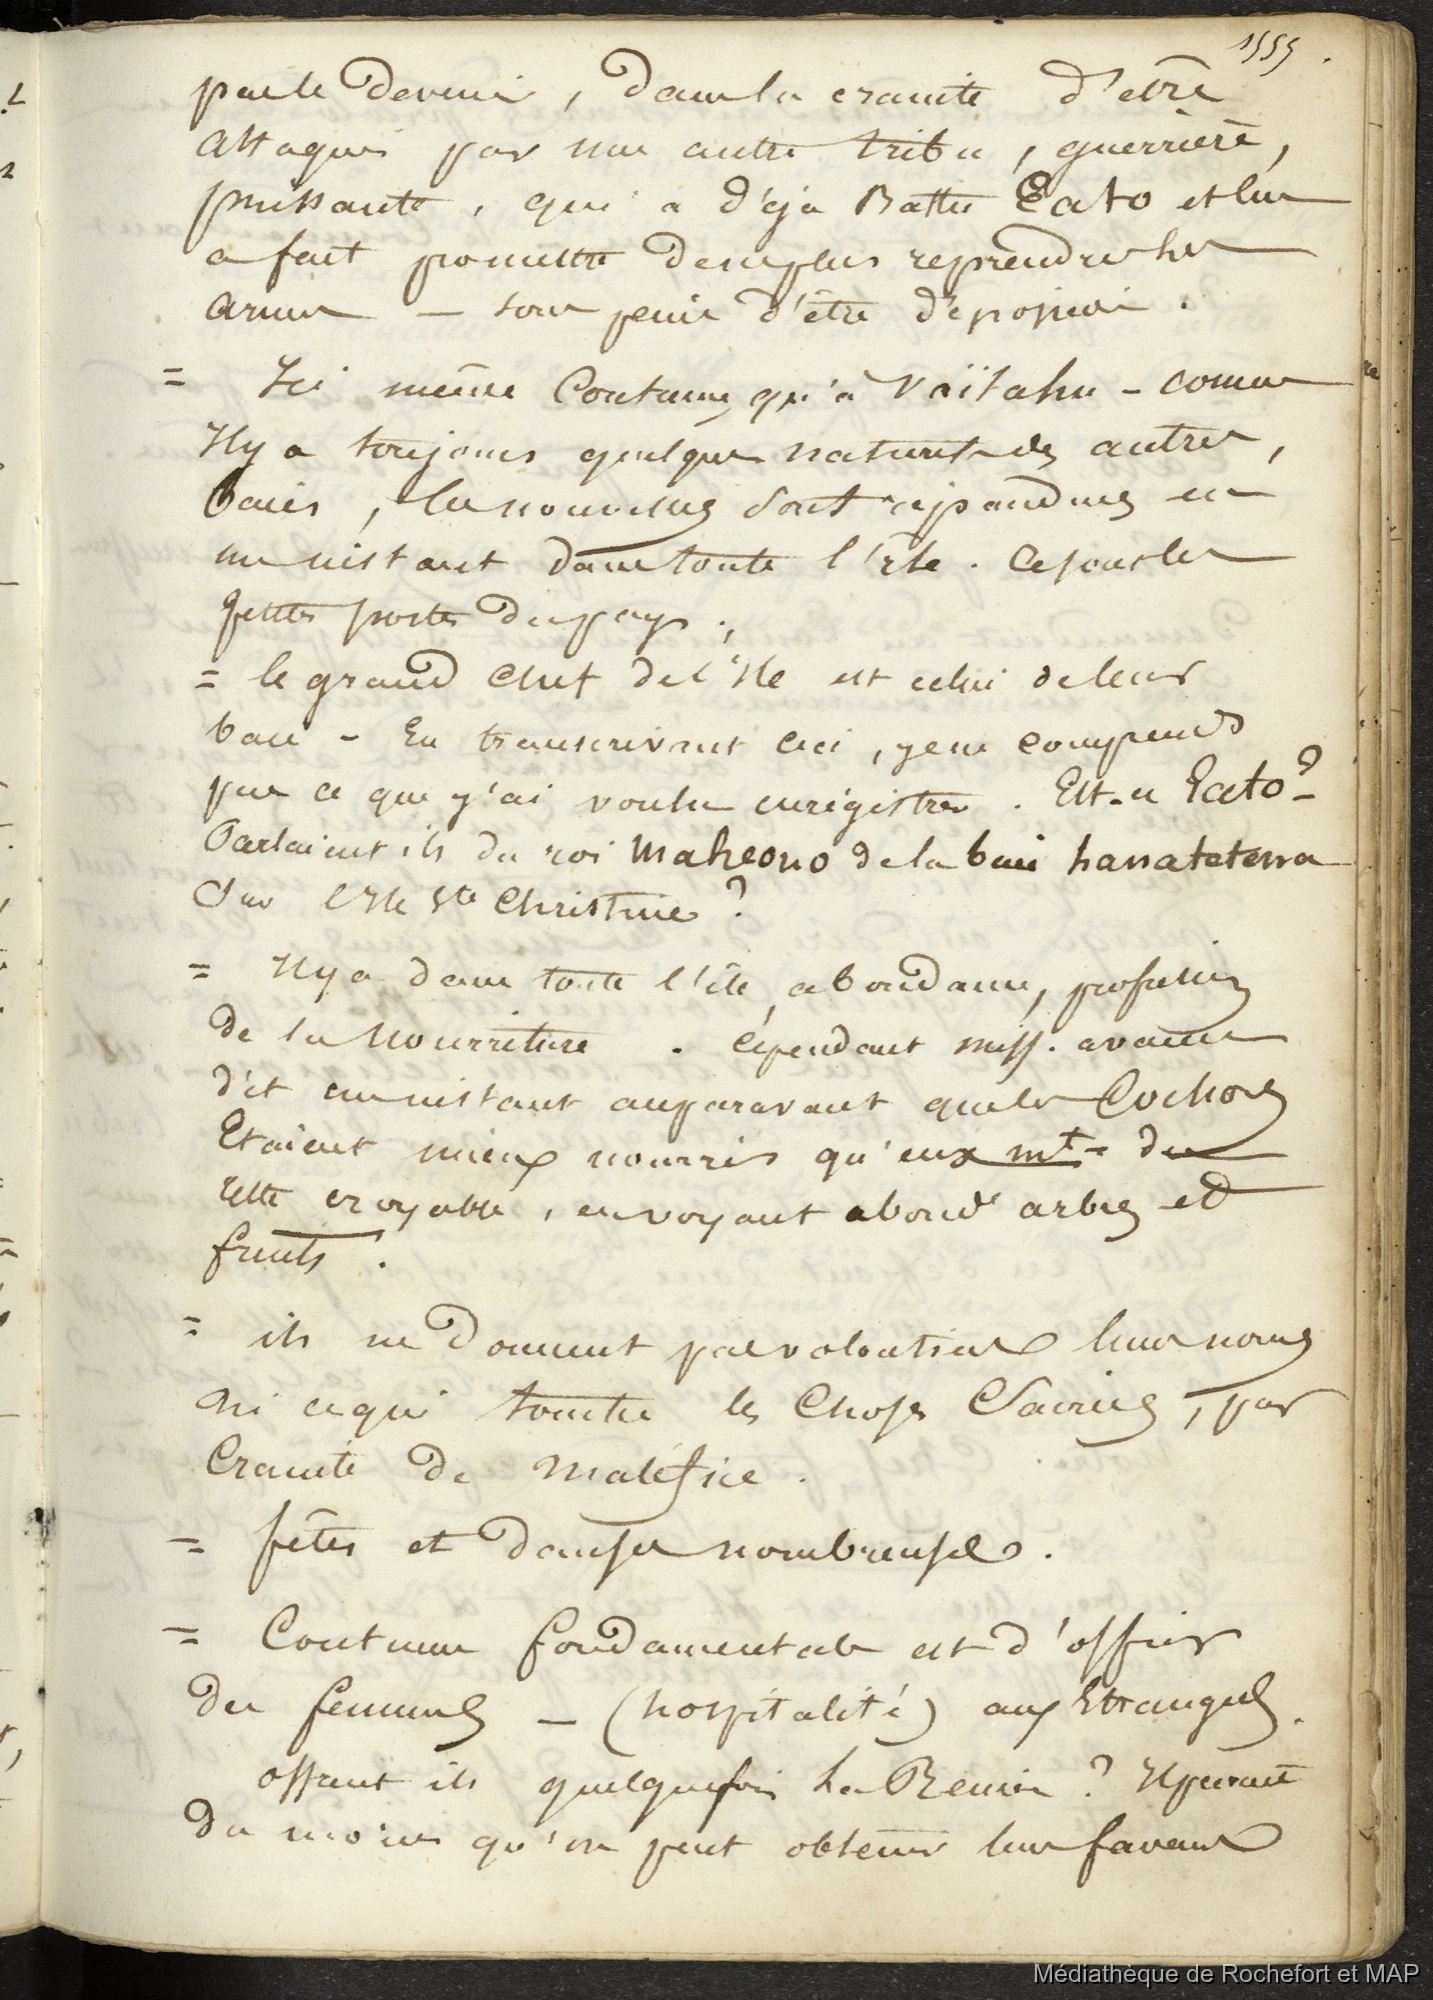 1555.
pas le devenir, dans la crainte d'être
attaqués par une autre tribu, guerrière,
puissante, qui a déja Battu Eato et lui
a fait promettre de ne plus reprendre les
armes — sous peine d'être
= Ici même Coutume qu'à Vaïtahu - comme
Il y a toujours quelques naturels des autres,
baies, les nouvelles sont répandues en
un instant dans toute l'Ile. Ce sont les
petites postes du pays.,
= le grand Chef de l'Ile est celui de leur
baie - En transcrivant ceci, je ne comprends
pas ce que j'ai voulu enrégistrer. Est-ce Eato?-
Parlaient ils du roi Maheono de la baie hanatetena
Sur l'Ile Ste Christine?
= Il y a dans toute l'île, abondance, profusion
de la Nourriture. Cépendant miss. avaient
dit un instant auparavant que les Cochons
Etaient mieux nourris qu'eux mt=
croyable, en voyant abond arbres et
fruits.
= ils ne donnent pas volontiers leurs noms
Ni ce qui touche les Choses Sacrées, par
Crainte de Maléfice.
= fêtes et danses nombreuses.
= Coutume fondamentale est d'offrir
des femmes — (hospitalité) aux Etrangers.
offrent ils quelquefois la Reine? Il parait
du moins qu'on peut obtenir leurs faveurs
Médiathèque de Rochefort et MAP